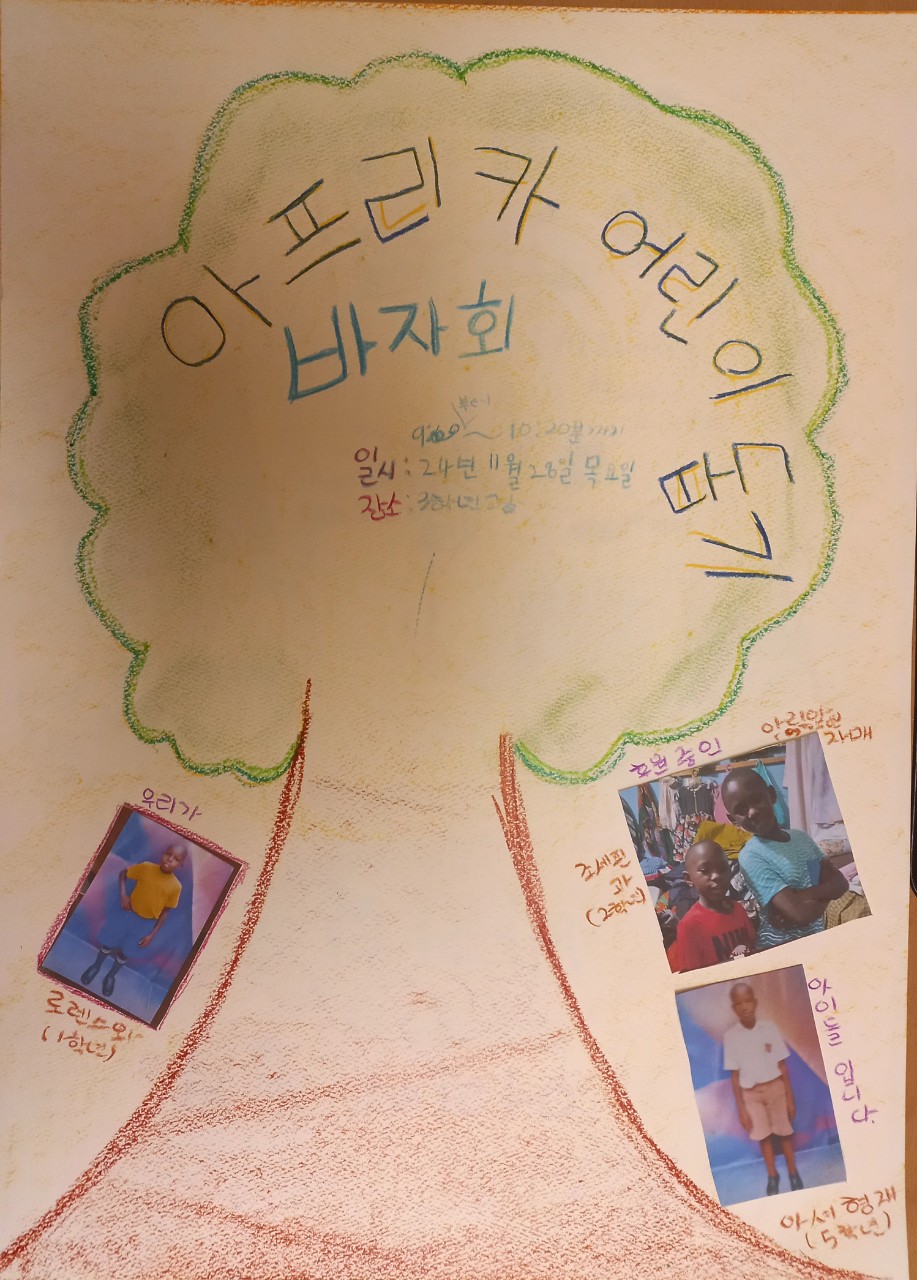 아프리카 어린이 돕기
바자회
부터
9:00 ~ 10:20분까지
일시 : 24년 11월 28일 목요일
장소 : 3학년교실
우리가
후원 중인
자매
조세핀
과
(2학년)
로렌스와
(1학년)
아이들 입니다.
아서 형제
(5학년)